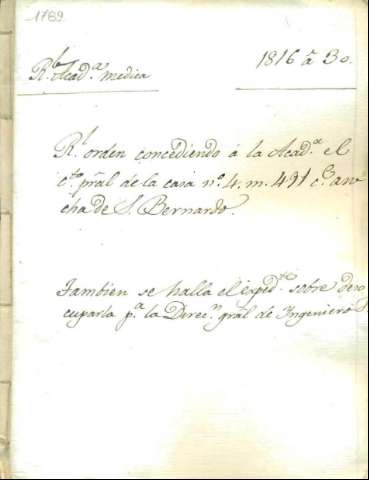 1789
Rl. Acad.a medica
1816 á 30.
Rl. orden concediendo á la Acad.a el
c.to pral de la casa n.o 4. m. 491 c.e an
cha de S. Bernardo.
Tambien se halla el exped.te sobre deso
cuparla p.a la Direc.n gral de Ingenieros